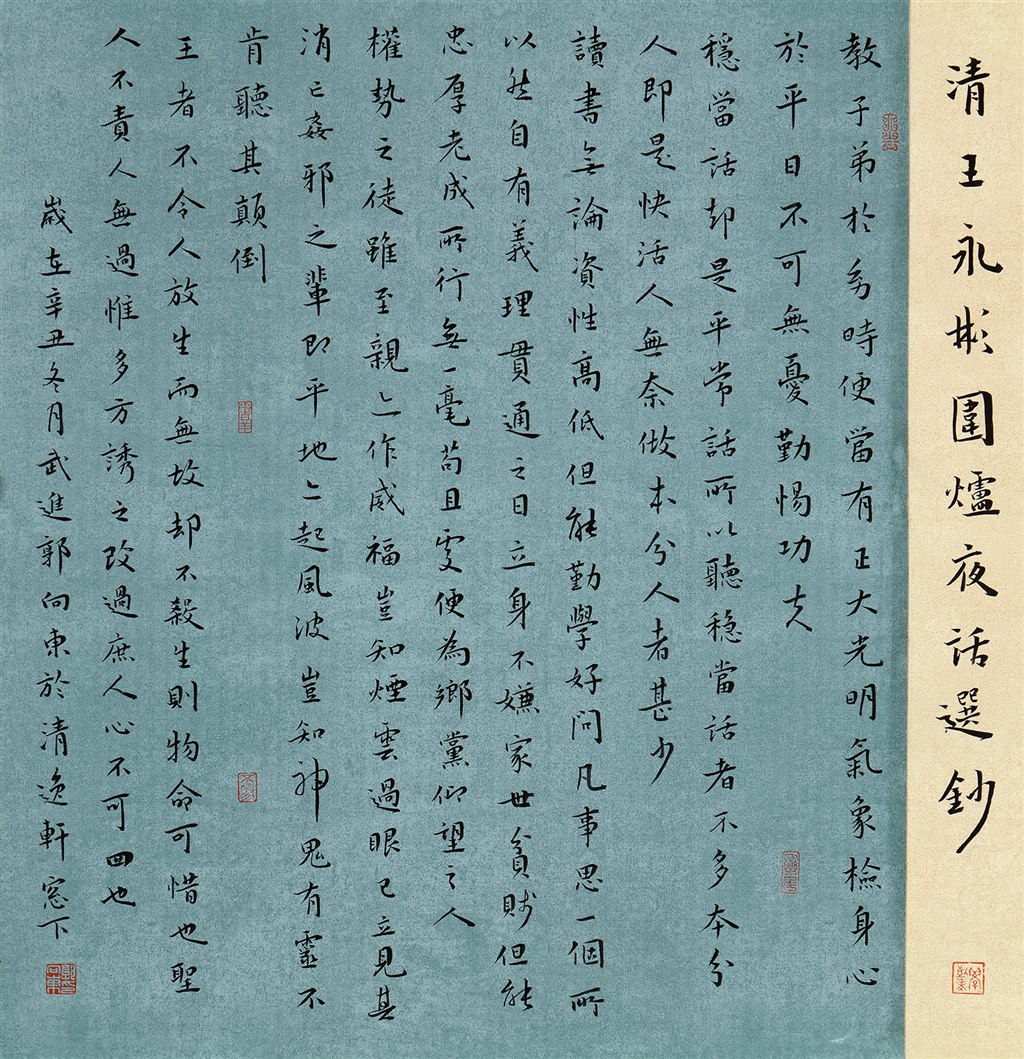 清王永彬圍爐夜話選鈔
教子弟於幼時便當有正大光明氣象檢身心
於平日不可無憂勤惕功夫
穩當話却是平常話所以聽穩當話者不多本分
人即是快活人無奈做本分人者甚少
讀書無論資性高低但能勤學好問凡事思一個所
以然自有義理貫通之日立身不嫌家世貧賤但能
忠厚老成所行無一毫苟且處便為鄉黨仰望之人
權勢之徒雖至親亦作威福豈知煙雲過眼已立見其
消亡姦邪之輩即平地亦起風波豈知神鬼有靈不
肯聽其顛倒
王者不令人放生而無故却不殺生則物命可惜也聖
人不責人無過惟多方誘之改過庶人心不可回也
歲在辛丑冬月武進郭向東於清逸軒窓下